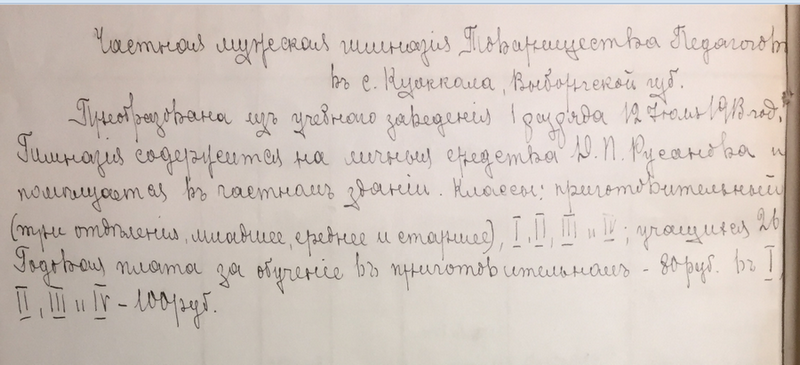 Частная мужская гимназія Товарищества Педагоговъ
въ с. Куоккала, Выборгской губ.
Преобразована изъ учебнаго заведенія I разряда 12 Іюля 1913 год.
Гимназія содержится на личныя средства Д. П. Русанова и
помѣщается въ частномъ зданіи. Классы: приготовительный
(три отдѣленія, младшее, среднее и старшее), I, II, III и IV; учащихся 26
Годовая плата за обученіе въ приготовительномъ - 80 руб. въ I,
II, III и IV - 100 руб.